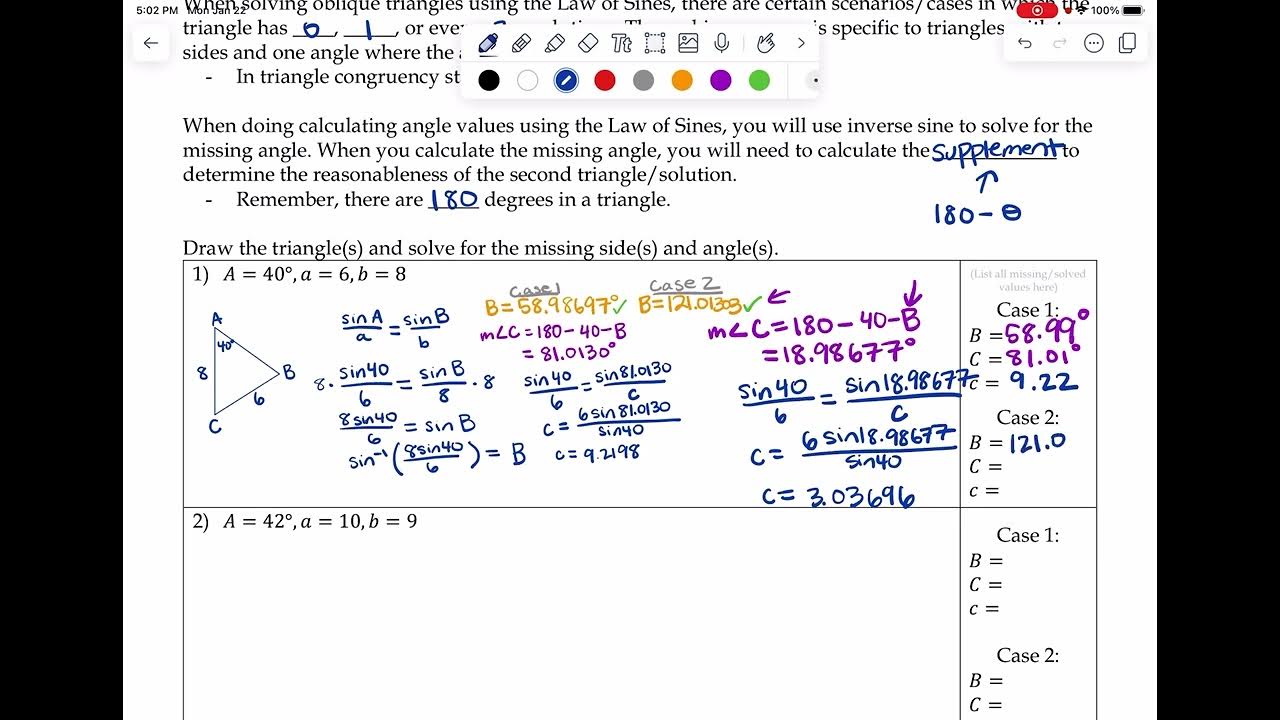 5:02 PM Mon Jan 22
100%
When solving oblique triangles using the Law of Sines, there are certain scenarios/cases in which the
triangle has 0, 1, or even is specific to triangles
sides and one angle where the
- In triangle congruency
When doing calculating angle values using the Law of Sines, you will use inverse sine to solve for the
missing angle. When you calculate the missing angle, you will need to calculate the supplement to
determine the reasonableness of the second triangle/solution.
- Remember, there are 180 degrees in a triangle.
180 - θ
Draw the triangle(s) and solve for the missing side(s) and angle(s).
1) A = 40°, a = 6, b = 8
A
40°
8
B
6
C
sinA/a = sinB/b
8 · sin40/6 = sinB/8 · 8
8sin40/6 = sinB
sin⁻¹(8sin40/6) = B
Case 1
B = 58.98697° ✓
m∠C = 180 - 40 - B
= 81.0130°
sin40/6 = sin81.0130/c
c = 6sin81.0130/sin40
c = 9.2198
Case 2
B = 121.01303 ✓ ←
m∠C = 180 - 40 - B
= 18.98677°
sin40/6 = sin18.98677/c
c = 6sin18.98677/sin40
c = 3.03696
(List all missing/solved
values here)
Case 1:
B = 58.99°
C = 81.01°
c = 9.22
Case 2:
B = 121.0
C =
c =
2) A = 42°, a = 10, b = 9
Case 1:
B =
C =
c =
Case 2:
B =
C =